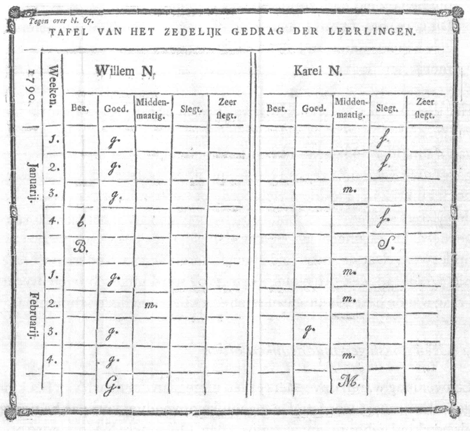 Tegen over bl. 67.
TAFEL VAN HET ZEDELIJK GEDRAG DER LEERLINGEN.
1790. Weeken. Willem N. Karel N.
Best. Goed. Middenmaatig. Slegt. Zeer slegt. Best. Goed. Middenmaatig. Slegt. Zeer slegt.
Januarij.
1. g. s.
2. g. s.
3. g. m.
4. b. s.
B. S.
Februarij.
1. g. m.
2. m. m.
3. g. g.
4. g. m.
G. M.